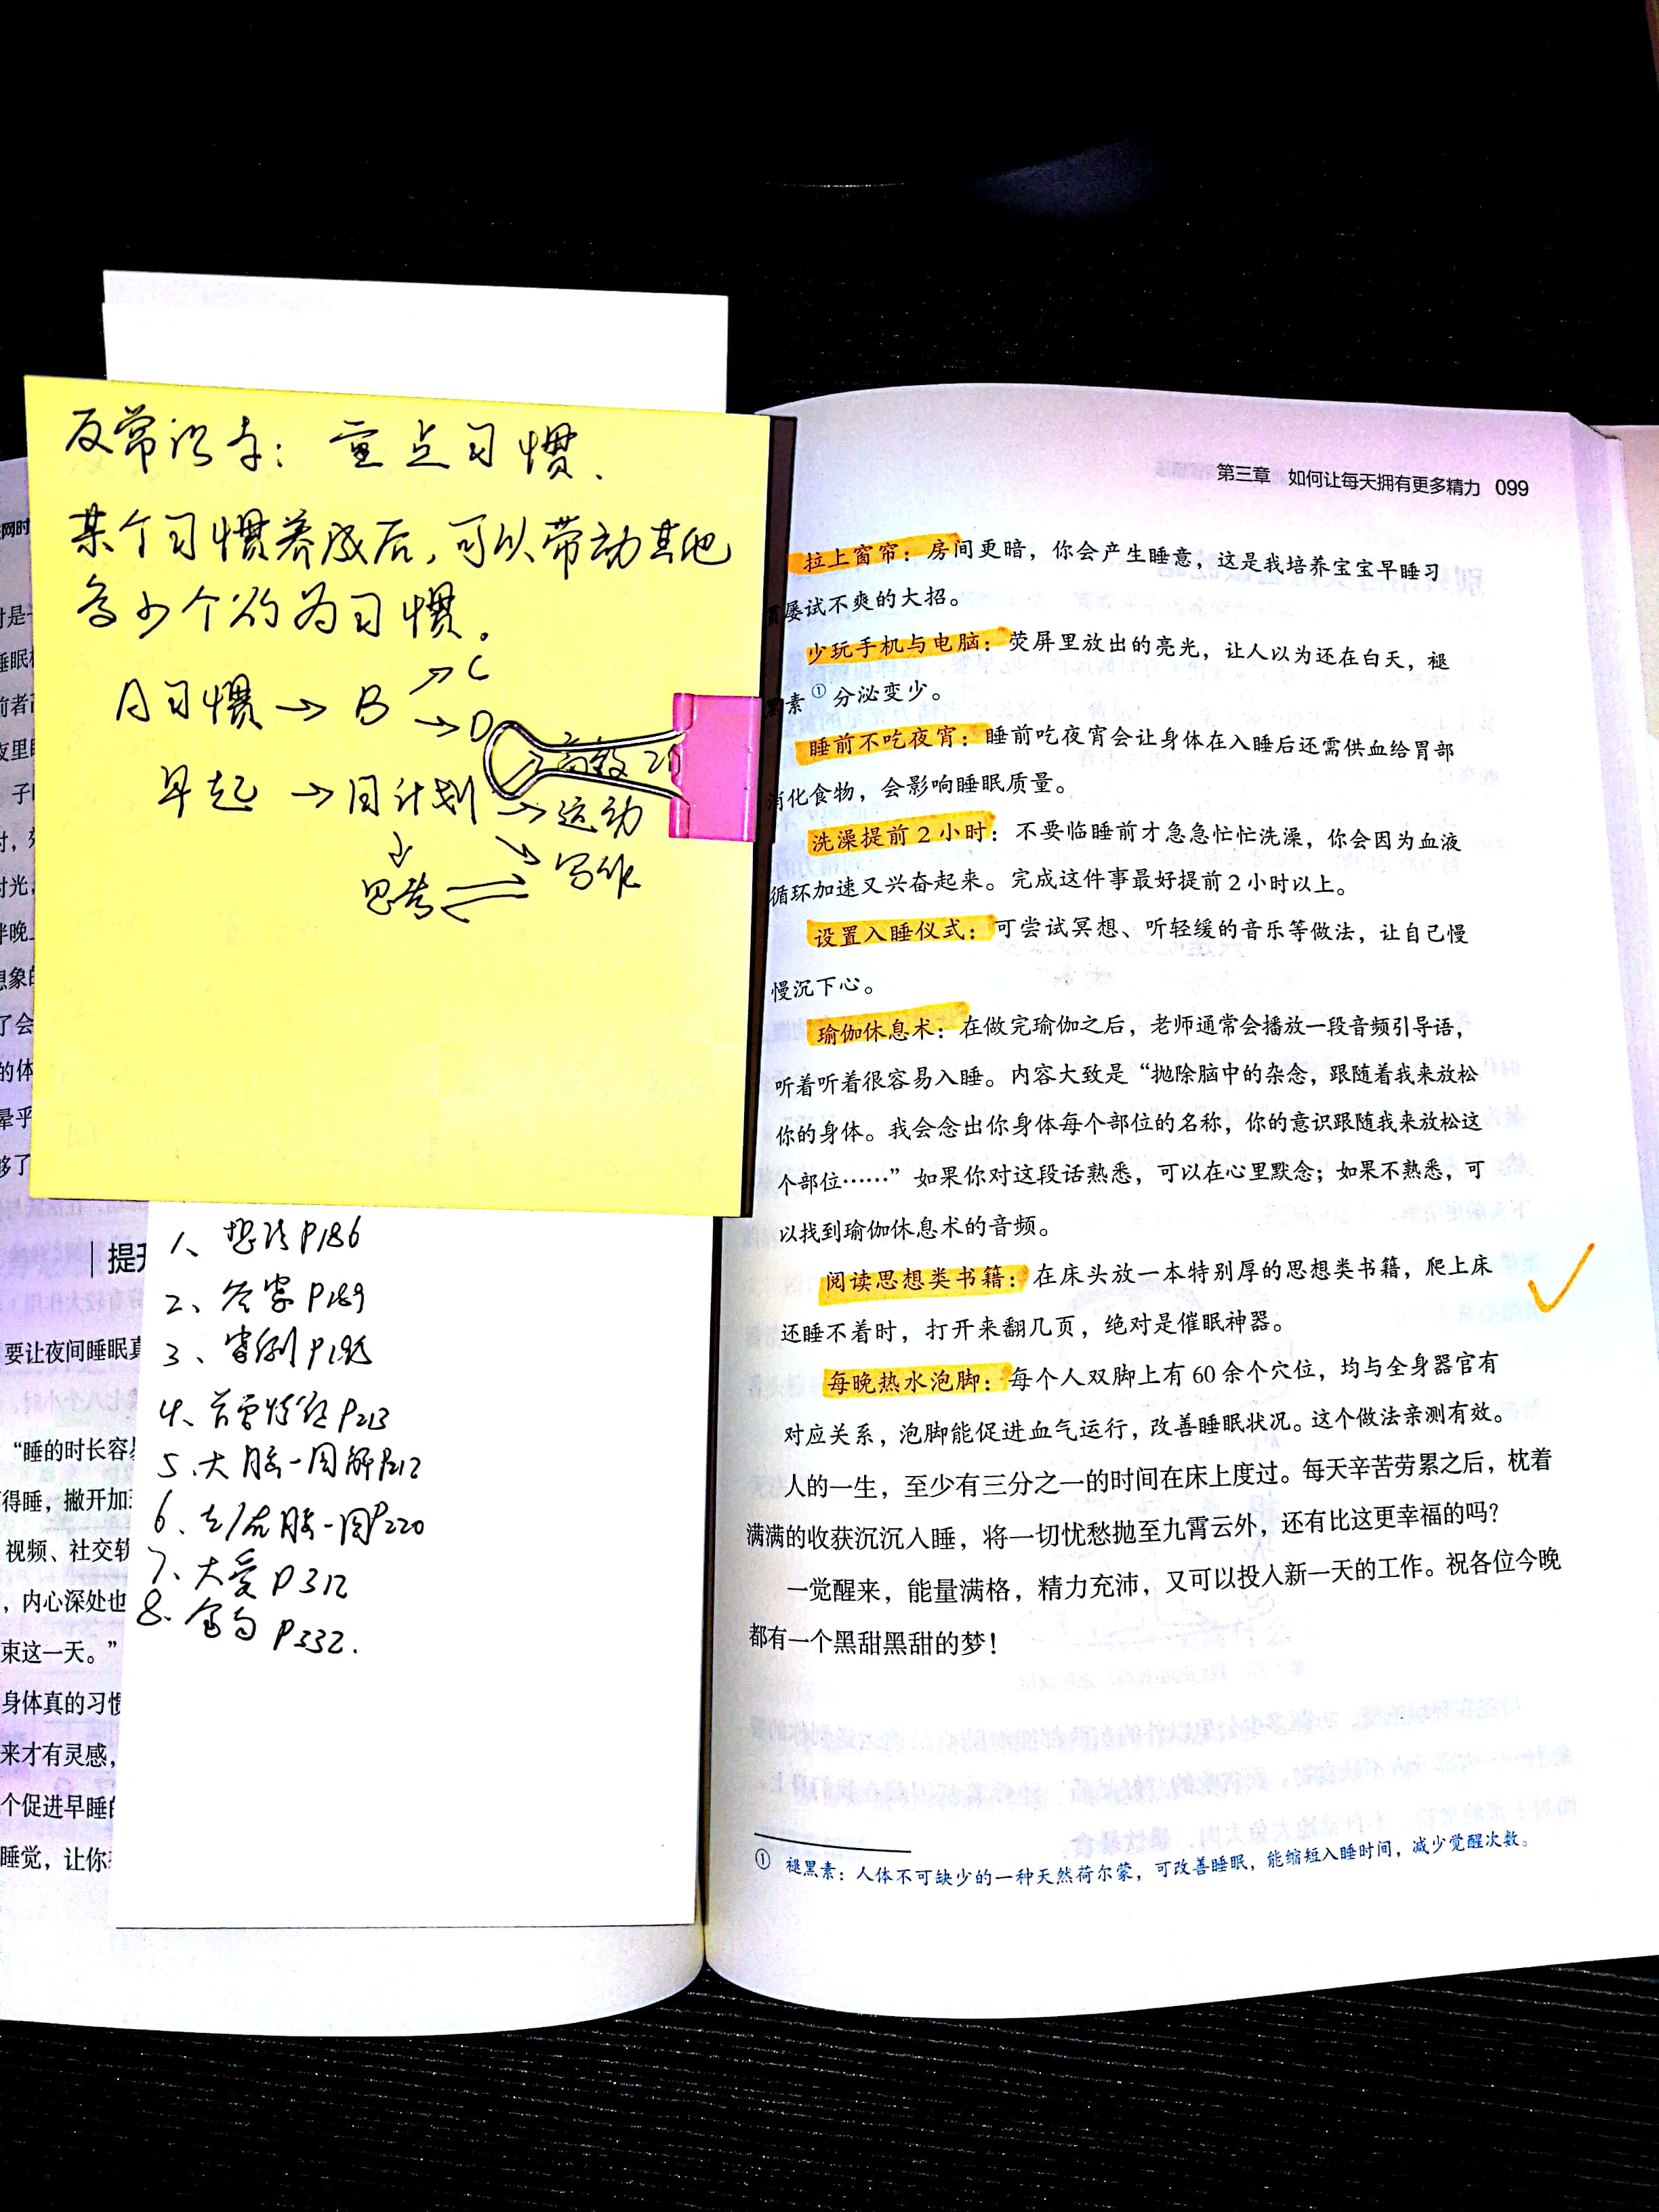 反常识专：重点习惯、
某个习惯养成后，可以带动其他
多少个行为习惯。
A习惯→B→C
→D
早起→周计划→高效
→运动
→写作
思考
1、想法P186
2、答案P189
3、案例
4、P213
5、大脑一图解P212
6、左/右脑一图P220
7、大爱P312
8、金句P332.
网时
时是
睡眠
前者
夜里
子
时，
时光，
伴晚
想象的
了会
的体
晕乎
够了
提升
要让夜间睡眠真
“睡的时长容易
得睡，撇开加班
视频、社交软
，内心深处也
束这一天。”
身体真的习惯
来才有灵感，
个促进早睡的
睡觉，让你
第三章 如何让每天拥有更多精力 099
拉上窗帘：房间更暗，你会产生睡意，这是我培养宝宝早睡习
惯屡试不爽的大招。
少玩手机与电脑：荧屏里放出的亮光，让人以为还在白天，褪
黑素①分泌变少。
睡前不吃夜宵：睡前吃夜宵会让身体在入睡后还需供血给胃部
消化食物，会影响睡眠质量。
洗澡提前2小时：不要临睡前才急急忙忙洗澡，你会因为血液
循环加速又兴奋起来。完成这件事最好提前2小时以上。
设置入睡仪式：可尝试冥想、听轻缓的音乐等做法，让自己慢
慢沉下心。
瑜伽休息术：在做完瑜伽之后，老师通常会播放一段音频引导语，
听着听着很容易入睡。内容大致是“抛除脑中的杂念，跟随着我来放松
你的身体。我会念出你身体每个部位的名称，你的意识跟随我来放松这
个部位……”如果你对这段话熟悉，可以在心里默念；如果不熟悉，可
以找到瑜伽休息术的音频。
阅读思想类书籍：在床头放一本特别厚的思想类书籍，爬上床
还睡不着时，打开来翻几页，绝对是催眠神器。
每晚热水泡脚：每个人双脚上有60余个穴位，均与全身器官有
对应关系，泡脚能促进血气运行，改善睡眠状况。这个做法亲测有效。
人的一生，至少有三分之一的时间在床上度过。每天辛苦劳累之后，枕着
满满的收获沉沉入睡，将一切忧愁抛至九霄云外，还有比这更幸福的吗？
一觉醒来，能量满格，精力充沛，又可以投入新一天的工作。祝各位今晚
都有一个黑甜黑甜的梦！
① 褪黑素：人体不可缺少的一种天然荷尔蒙，可改善睡眠，能缩短入睡时间，减少觉醒次数。